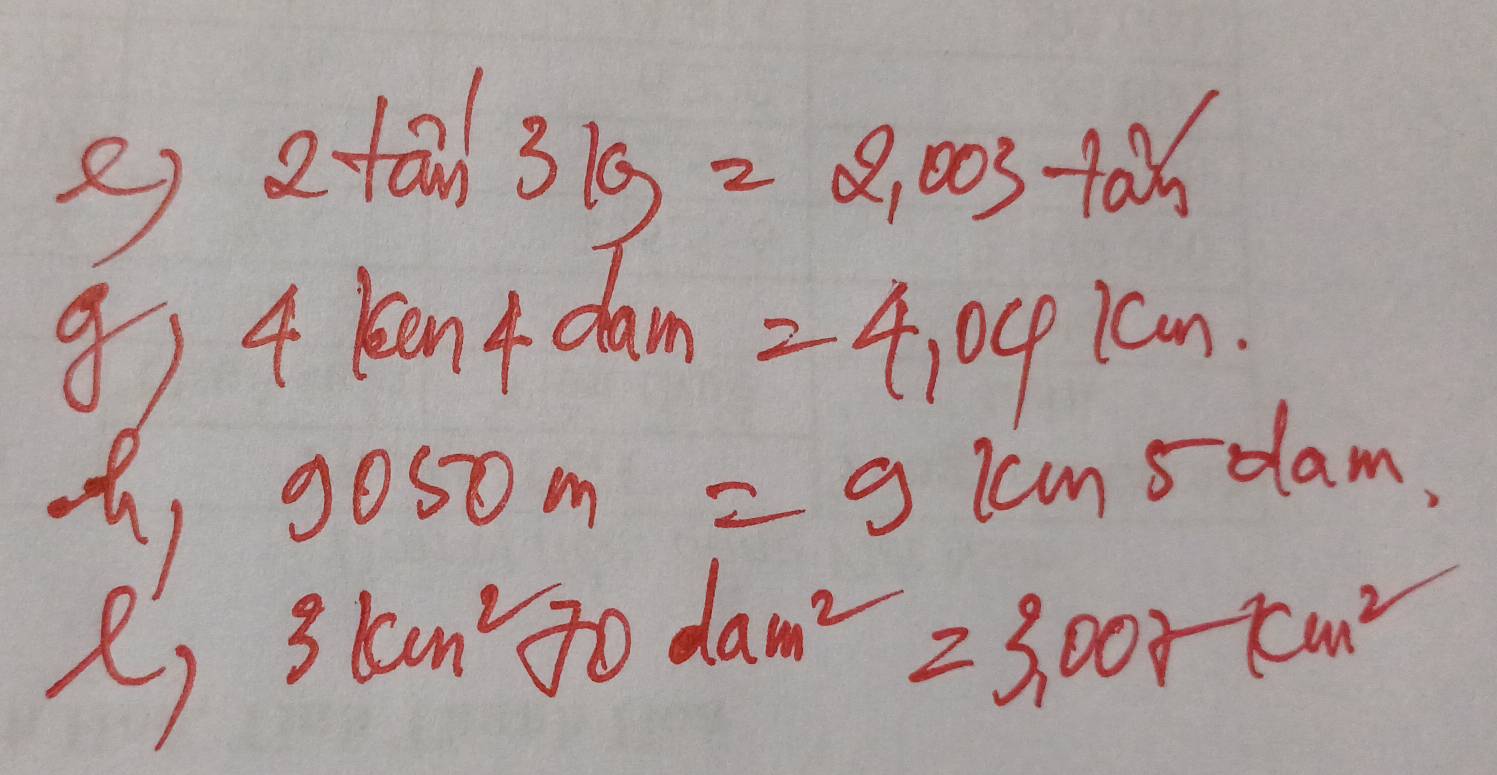 e, 2 tấn 3 kg = 2,003 tấn
g, 4 km 4 dam = 4,04 km.
h, 9050 m = 9 km 5 dam.
l, 3 km² 70 dam² = 3,007 km²